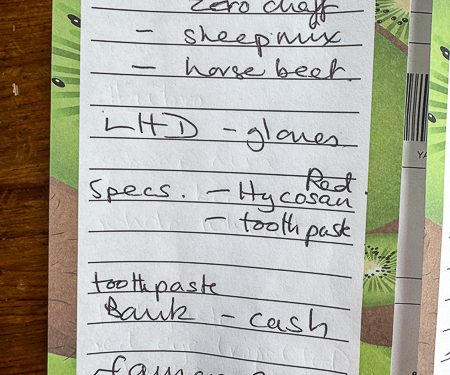 zero chaff
- sheep mix
- horse beet.
LHD - gloves
Red.
Specs. - Hycosan
- toothpaste
toothpaste
Bank - cash
YA